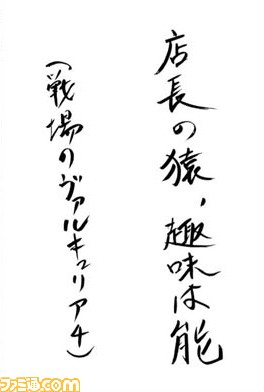 店長の猿，趣味は能
（戦場のヴァルキュリア4）
ファミ通.com